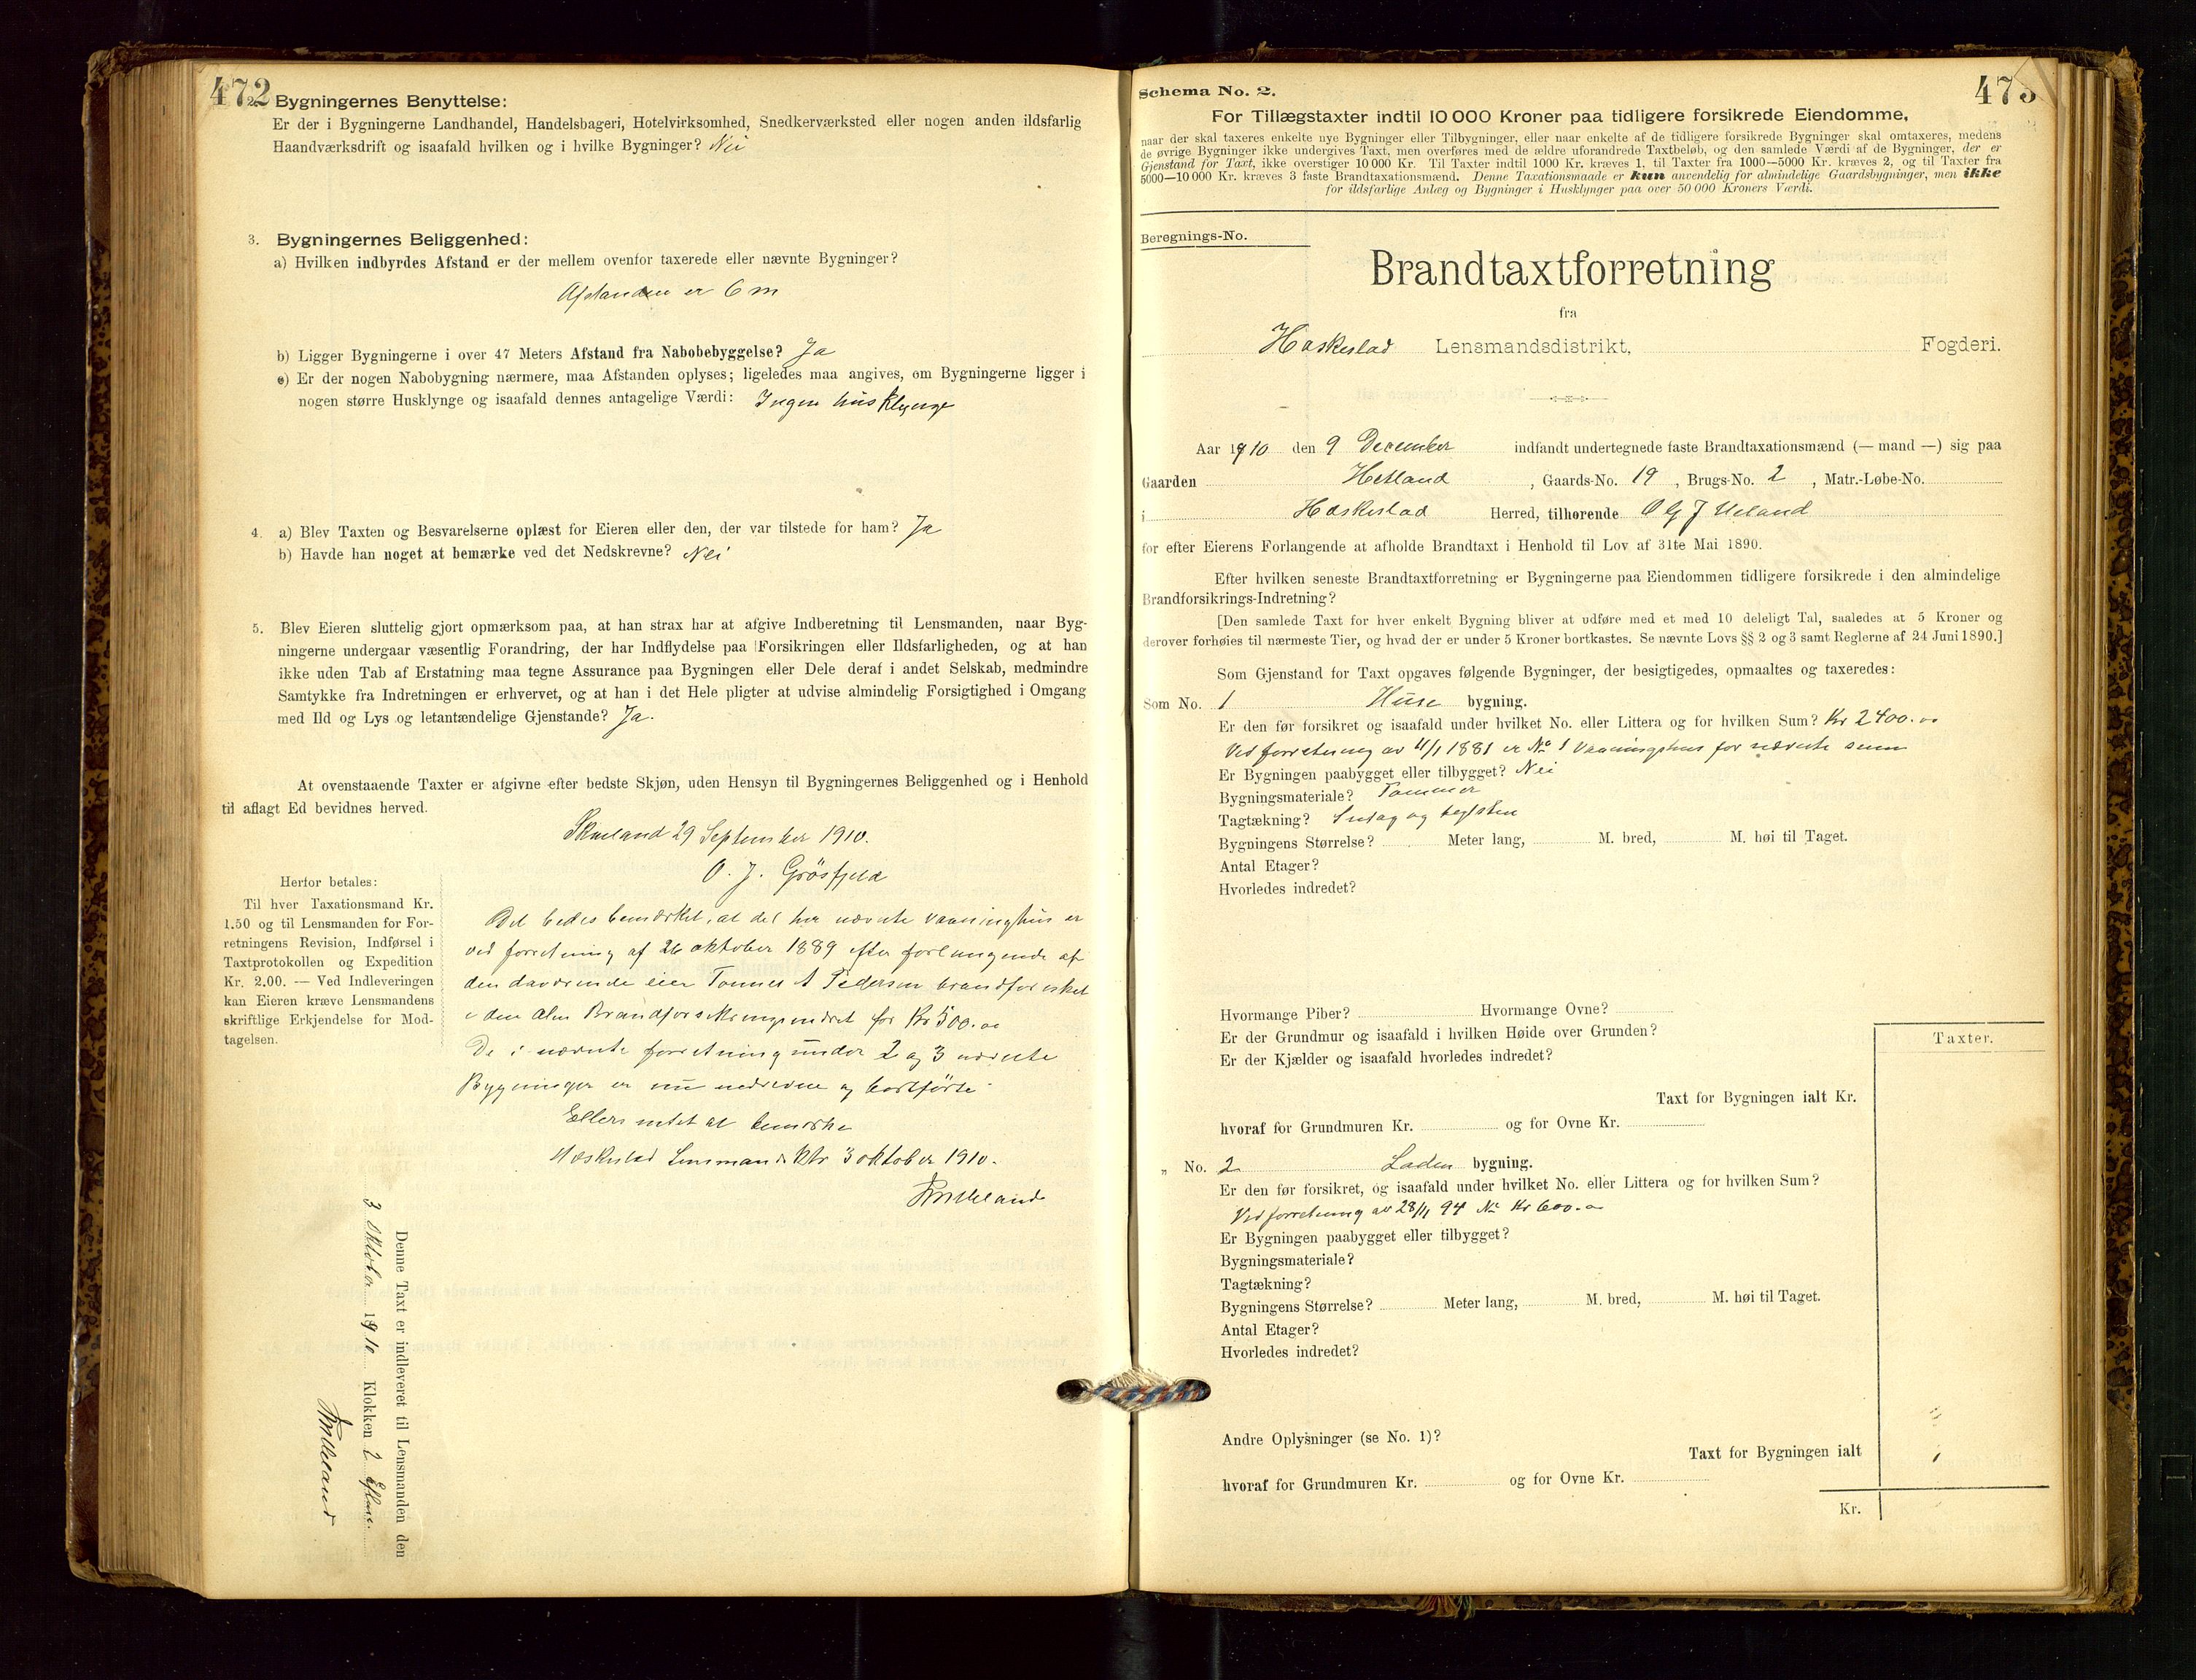 472
2. Bygningernes Benyttelse:
Er der i Bygningerne Landhandel, Handelsbageri, Hotelvirksomhed, Snedkerværksted eller nogen anden ildsfarlig
Haandværksdrift og isaafald hvilken og i hvilke Bygninger? Nei
3. Bygningernes Beliggenhed:
a) Hvilken indbyrdes Afstand er der mellem ovenfor taxerede eller nævnte Bygninger?
Afstanden er 6 m
b) Ligger Bygningerne i over 47 Meters Afstand fra Nabobebyggelse? Ja
c) Er der nogen Nabobygning nærmere, maa Afstanden oplyses; ligeledes maa angives, om Bygningerne ligger i
nogen større Husklynge og isaafald dennes antagelige Værdi: Ingen husklynge
4. a) Blev Taxten og Besvarelserne oplæst for Eieren eller den, der var tilstede for ham? Ja
b) Havde han noget at bemærke ved det Nedskrevne? Nei
5. Blev Eieren sluttelig gjort opmærksom paa, at han strax har at afgive Indberetning til Lensmanden, naar Byg-
ningerne undergaar væsentlig Forandring, der har Indflydelse paa Forsikringen eller Ildsfarligheden, og at han
ikke uden Tab af Erstatning maa tegne Assurance paa Bygningen eller Dele deraf i andet Selskab, medmindre
Samtykke fra Indretningen er erhvervet, og at han i det Hele pligter at udvise almindelig Forsigtighed i Omgang
med Ild og Lys og letantændelige Gjenstande? Ja.
At ovenstaaende Taxter er afgivne efter bedste Skjøn, uden Hensyn til Bygningernes Beliggenhed og i Henhold
til aflagt Ed bevidnes herved.
Skueland 29 September 1910.
O. J. Grösfjeld
Herfor betales:
Til hver Taxationsmand Kr.
1.50 og til Lensmanden for For-
retningens Revision, Indførsel i
Taxtprotokollen og Expedition
Kr. 2.00. — Ved Indleveringen
kan Eieren kræve Lensmandens
skriftlige Erkjendelse for Mod-
tagelsen.
Det bedes bemærket, at det her nævnte vaaningshus er
ved forretning af 26 oktober 1889 efter forlangende af
den daværende eier Tønnes A Pedersen brandforsikret
i den Alm Brandforsikringsindret for Kr 500.00
De i nævnte forretning under 2 og 3 nævnte
Bygninger er nu nedrevne og bortførte
Ellers intet at bemærke
Heskestad Lensmandsktr 3 oktober 1910.
Denne Taxt er indleveret til Lensmanden den
3 Oktober 1910 Klokken 2 Efterm.
473
Schema No. 2.
For Tillægstaxter indtil 10 000 Kroner paa tidligere forsikrede Eiendomme,
naar der skal taxeres enkelte nye Bygninger eller Tilbygninger, eller naar enkelte af de tidligere forsikrede Bygninger skal omtaxeres, medens
de øvrige Bygninger ikke undergives Taxt, men overføres med de ældre uforandrede Taxtbeløb, og den samlede Værdi af de Bygninger, der er
Gjenstand for Taxt, ikke overstiger 10 000 Kr. Til Taxter indtil 1000 Kr. kræves 1, til Taxter fra 1000—5000 Kr. kræves 2, og til Taxter fra
5000—10 000 Kr. kræves 3 faste Brandtaxationsmænd. Denne Taxationsmaade er kun anvendelig for almindelige Gaardsbygninger, men ikke
for ildsfarlige Anlæg og Bygninger i Husklynger paa over 50 000 Kroners Værdi.
Beregnings-No.
Brandtaxtforretning
fra
Heskestad Lensmandsdistrikt, Fogderi.
Aar 1910 den 9 December indfandt undertegnede faste Brandtaxationsmænd (— mand —) sig paa
Gaarden Hetland, Gaards-No. 19, Brugs-No. 2, Matr.-Løbe-No.
i Heskestad Herred, tilhørende O G J Ueland
for efter Eierens Forlangende at afholde Brandtaxt i Henhold til Lov af 31te Mai 1890.
Efter hvilken seneste Brandtaxtforretning er Bygningerne paa Eiendommen tidligere forsikrede i den almindelige
Brandforsikrings-Indretning?
[Den samlede Taxt for hver enkelt Bygning bliver at udføre med et med 10 deleligt Tal, saaledes at 5 Kroner og
derover forhøies til nærmeste Tier, og hvad der er under 5 Kroner bortkastes. Se nævnte Lovs §§ 2 og 3 samt Reglerne af 24 Juni 1890.]
Som Gjenstand for Taxt opgaves følgende Bygninger, der besigtigedes, opmaaltes og taxeredes:
Som No. 1 Huse bygning.
Er den før forsikret og isaafald under hvilket No. eller Littera og for hvilken Sum? Kr 2400.00
Ved forretning av 4/1 1881 er No 1 Vaaningshus for nævnte sum
Er Bygningen paabygget eller tilbygget? Nei
Bygningsmateriale? Tømmer
Tagtækning? og teglsten
Bygningens Størrelse? Meter lang, M. bred, M. høi til Taget.
Antal Etager?
Hvorledes indredet?
Hvormange Piber? Hvormange Ovne?
Er der Grundmur og isaafald i hvilken Høide over Grunden?
Er der Kjælder og isaafald hvorledes indredet?
Taxter.
Taxt for Bygningen ialt Kr.
hvoraf for Grundmuren Kr. og for Ovne Kr.
" No. 2 Laden bygning.
Er den før forsikret, og isaafald under hvilket No. eller Littera og for hvilken Sum?
Ved forretning av 28/11 94 No Kr 600.00
Er Bygningen paabygget eller tilbygget?
Bygningsmateriale?
Tagtækning?
Bygningens Størrelse? Meter lang, M. bred, M. høi til Taget.
Antal Etager?
Hvorledes indredet?
Andre Oplysninger (se No. 1)?
Taxt for Bygningen ialt
hvoraf for Grundmuren Kr. og for Ovne Kr.
Kr.